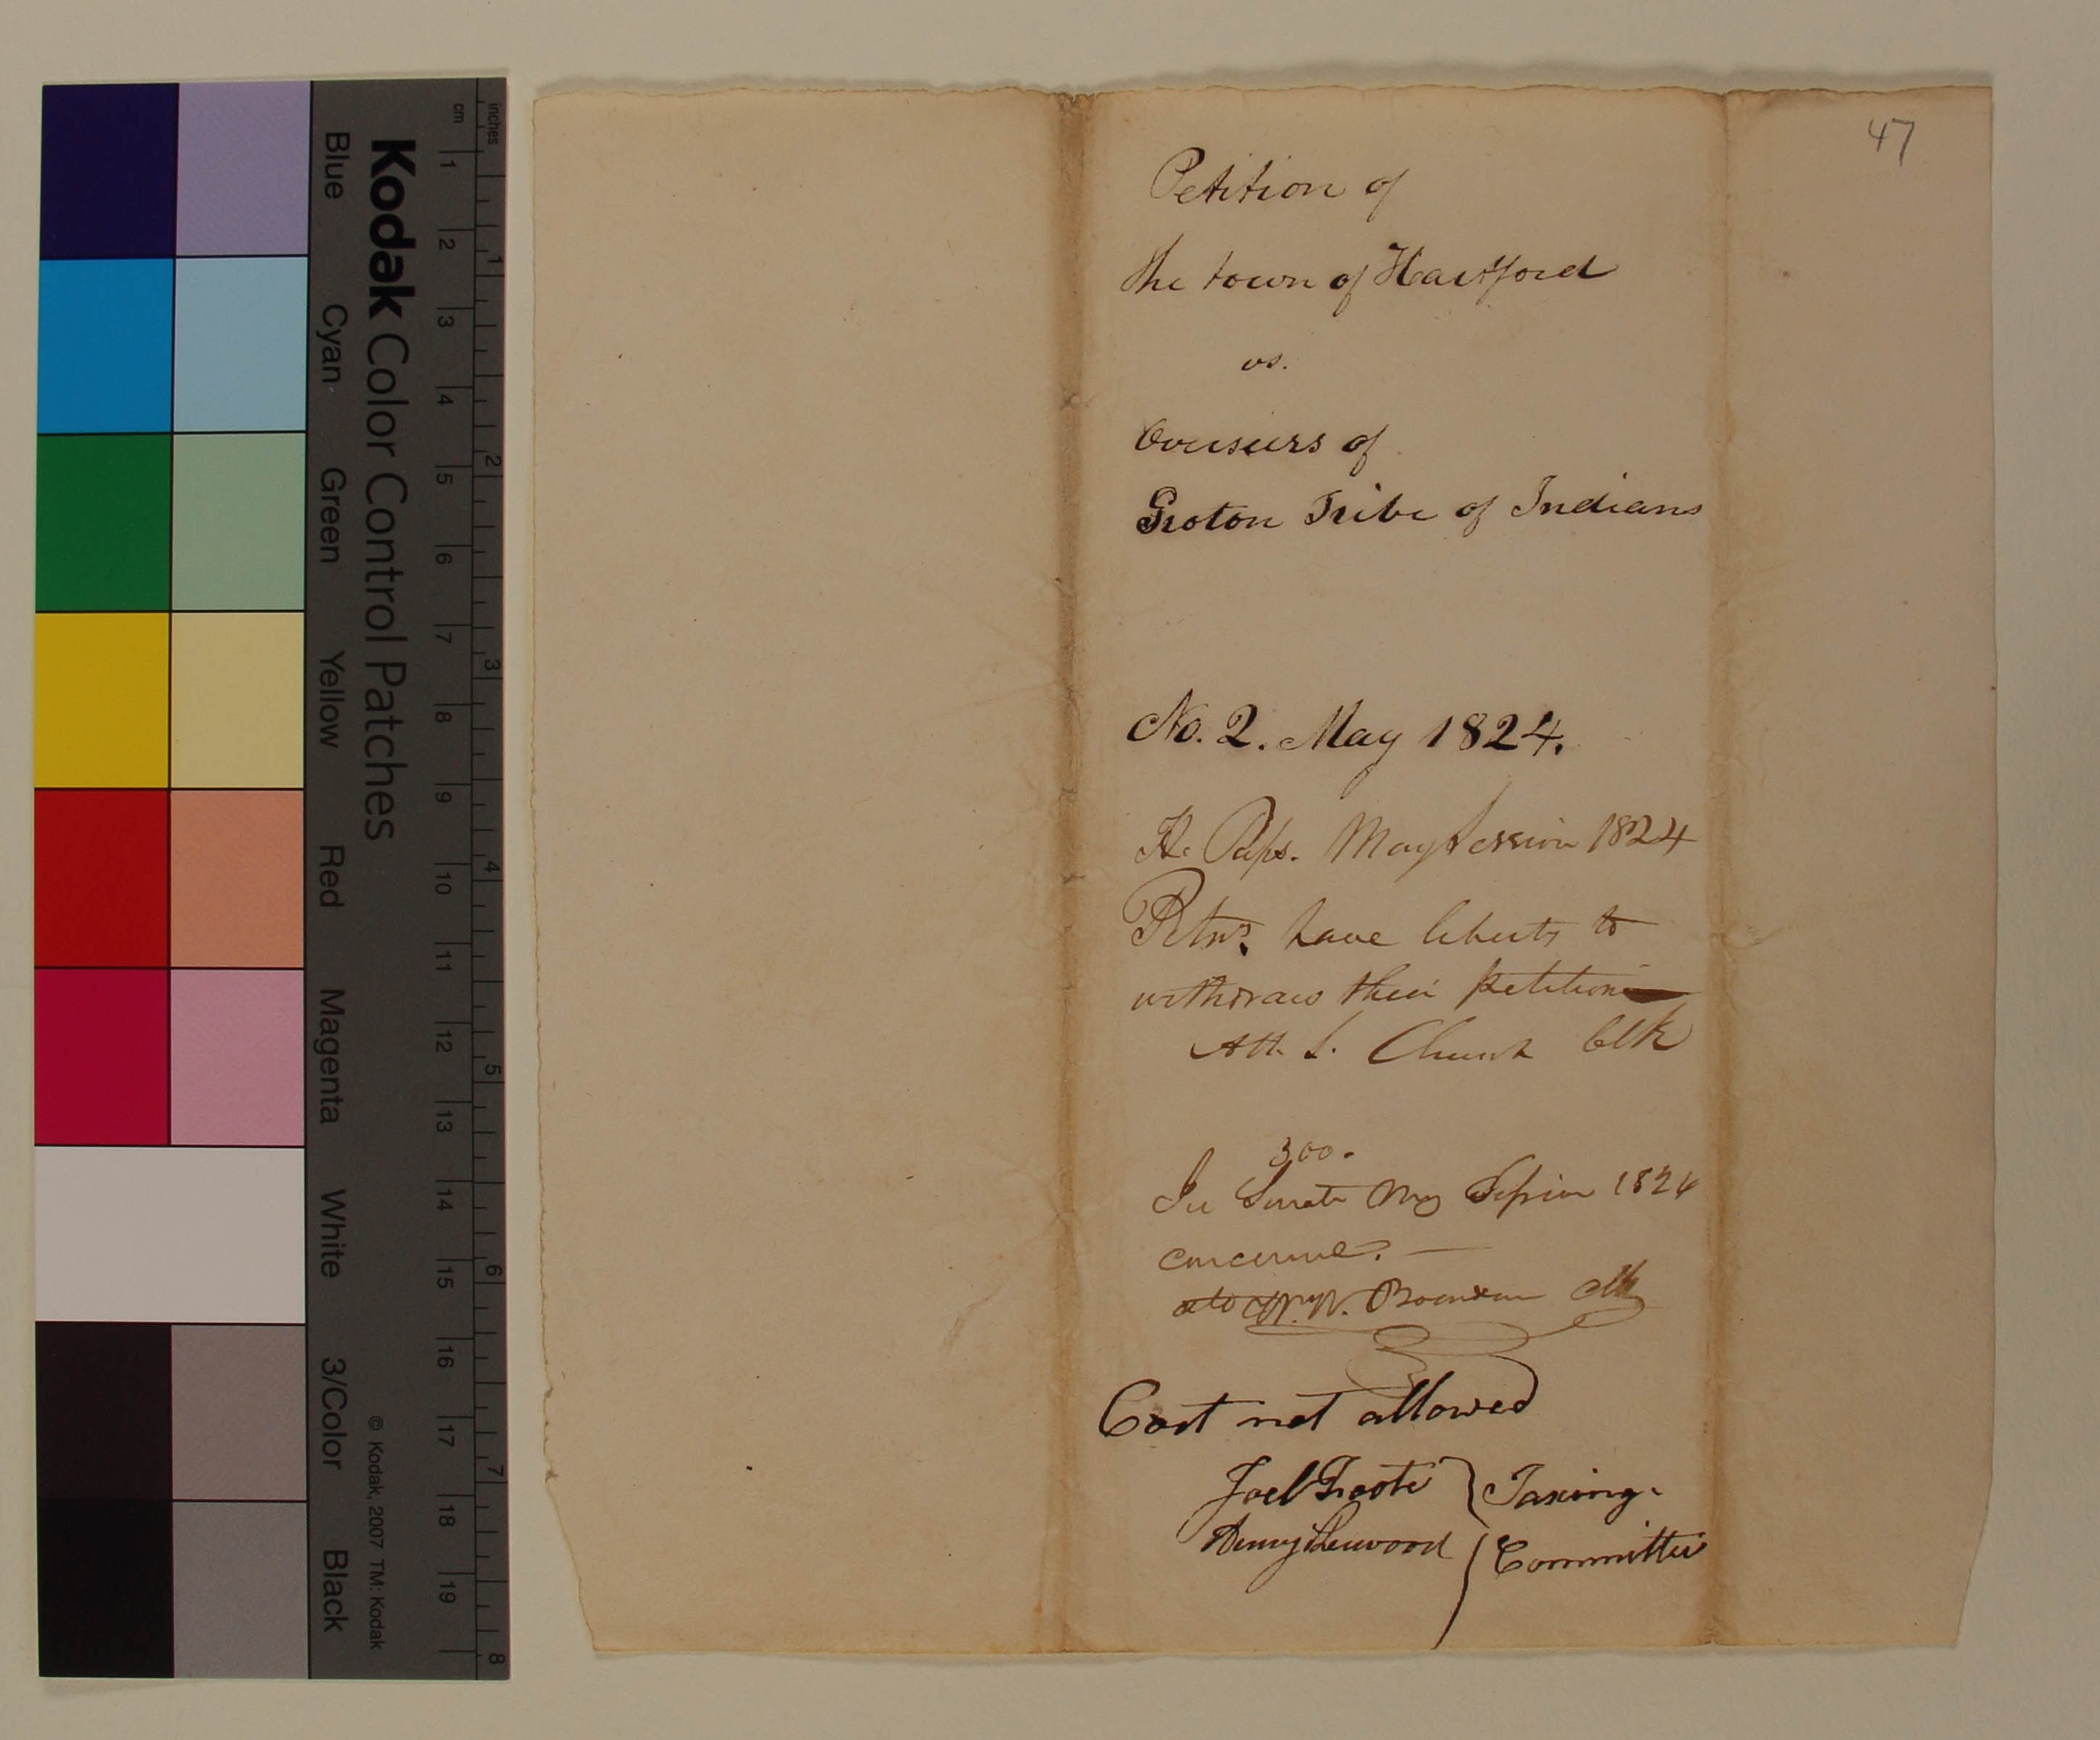 inches
cm
1 2 3 4 5 6 7 8 9 10 11 12 13 14 15 16 17 18 19
1 2 3 4 5 6 7 8
Kodak Color Control Patches
© Kodak, 2007 TM: Kodak
Blue Cyan Green Yellow Red Magenta White 3/Color Black
47
Petition of
The town of Hartford
vs.
Overseers of
Groton Tribe of Indians
No. 2. May 1824.
H. Reps. May Session 1824
Petnrs. have liberty to
withdraw their petition
Att. S. Church Clk
300.
In Senate May Session 1824
concurred.
Clk
Cost not allowed
Joel Foote } Taxing
Henry Sherwood } Committee